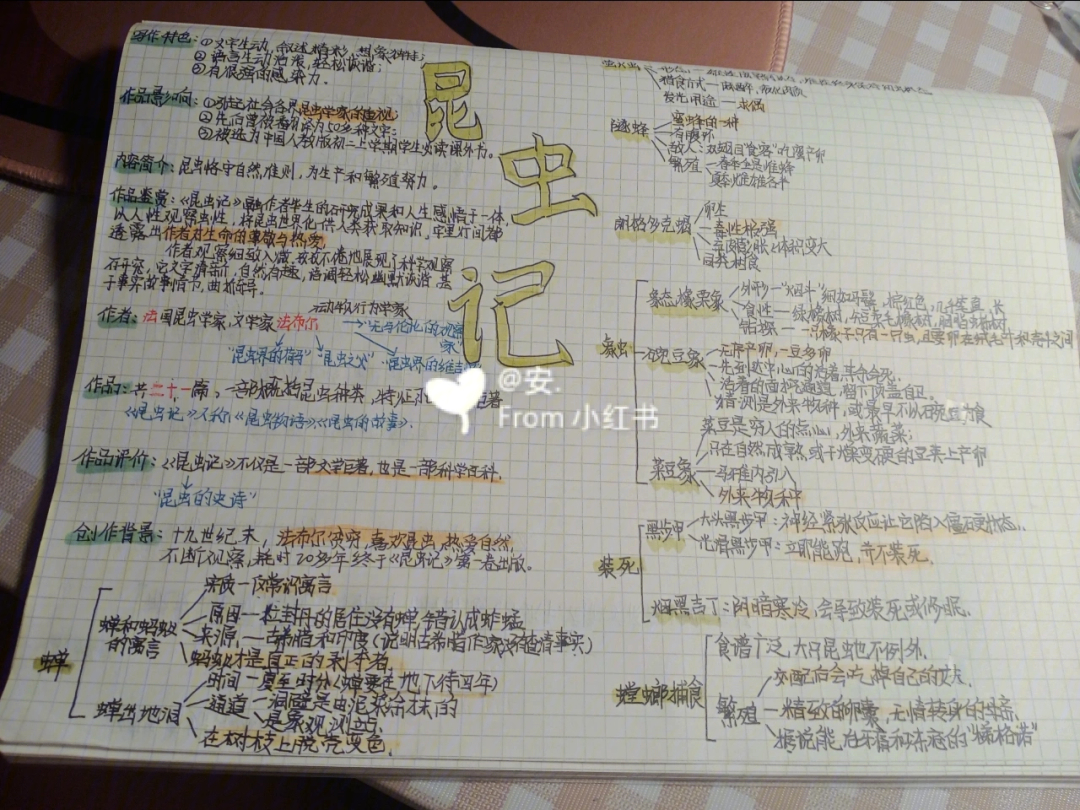 昆虫记
写作特色：①文字生动，叙述精彩，想象独特；
②语言生动活泼，轻松诙谐；
③有很强的感染力。
作品影响：①引起社会各界昆虫学家的重视；
②先后曾被翻译为50多种文字；
③被选为中国人教版初二上学期学生必读课外书。
内容简介：昆虫恪守自然准则，为生产和繁殖努力。
作品鉴赏：《昆虫记》融作者毕生的研究成果和人生感悟于一体，
以人性观察虫性，将昆虫世界化作供人类获取知识，字里行间都
透露出作者对生命的尊敬与热爱
作者观察细致入微，孜孜不倦地展现了科学观察
研究，它文字清新，自然有趣，语调轻松幽默诙谐，基
于事实故事情节，曲折奇异。
动物行为学家
作者：法国昆虫学家，文学家法布尔
"无与伦比的观察家"
"昆虫界的荷马" "昆虫之父" "昆虫界的维吉
作品：共二十一篇，一部概括昆虫种类，特征
《昆虫记》又称《昆虫物语》《昆虫的故事》.
作品评价：《昆虫记》不仅是一部文学巨著，也是一部科学百科.
"昆虫的史诗"
创作背景：十九世纪末，法布尔贫穷，喜欢昆虫，热爱自然，
不断观察，耗时20多年终于《昆虫记》第一卷出版。
蝉
蝉和蚂蚁的寓言
实质—仅常识寓言
原因—拉封丹的居住没有蝉，错认成蚱蜢
来源—古希腊和印度（说明古希腊作家没有查清事实）
蚂蚁才是真正的剥削者.
蝉出地洞
时间—夏至时分（蝉要在地下待四年）
通道—洞壁是由泥浆涂抹的
是气象观测站点.
在树枝上脱壳变色.
捕食方式—麻醉，液化肉质
发光用途—求偶
隧蜂
蜜蜂的一种
有腹沟
敌人：双翅目"食客"吃蛋产卵
繁殖—春季全是雌蜂
夏季雌雄各半
朗格多克蝎
卵生
毒性极强
至四月胀，体积变大
象虫
象态橡栗象
食性—绿橡树，短柔毛橡树，胭脂虫栎树
豌豆象
无序产卵，一豆多卵
先到达中心的活着，其余会死.
活着的面积通道，留下顶盖自卫.
猜测是外来物种，或最早不以豌豆为食
菜豆象
菜豆是穷人的点心，外来蔬菜；
只在自然成熟或干燥变硬的豆荚上产卵
马雅内引入
外来物种
装死
黑步甲
大头黑步甲：神经紧张反应让它陷入僵硬状态.
光滑黑步甲：立即能跑，并不装死.
烟黑吉丁：阴暗寒冷，会导致装死或休眠.
螳螂捕食
食谱广泛，大只昆虫也不例外.
繁殖
交配后会吃掉自己的丈夫.
精致的卵囊，无情转身的母亲.
据说能治牙痛和冻疮的"梯格诺"
@安.
From 小红书